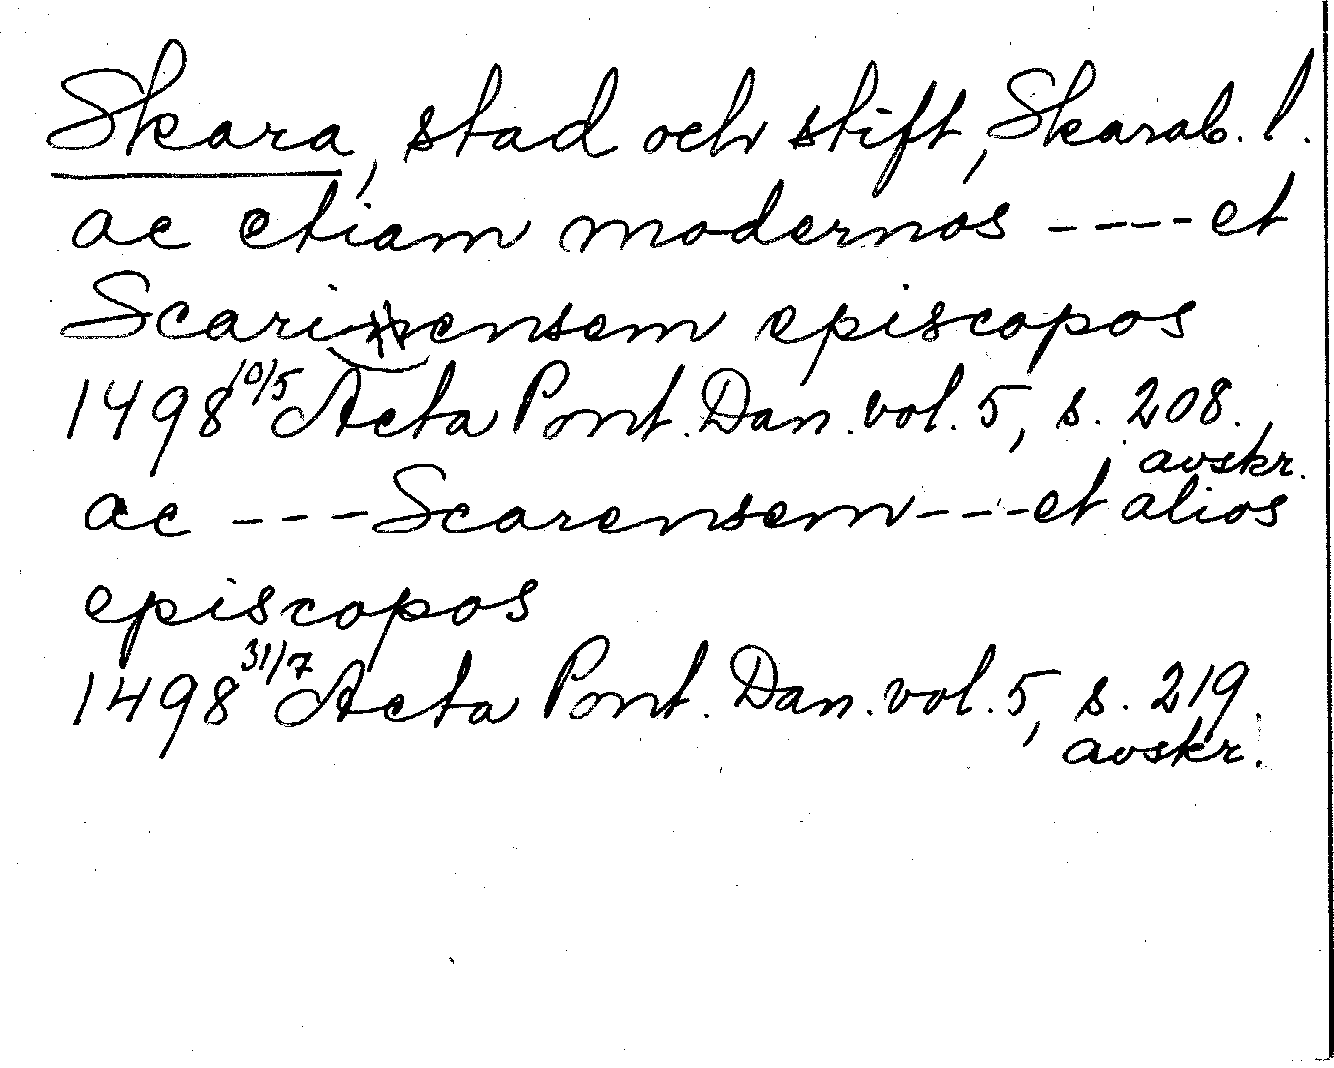 Skara, stad och stift, Skarab. l.
ac etiam modernos ---- et
Scariensem episcopos
1498 10/5 Acta Pont. Dan. vol. 5, s. 208.
avskr.
ac --- Scarensem --- et alios
episcopos
1498 31/7 Acta Pont. Dan. vol. 5, s. 219.
avskr.